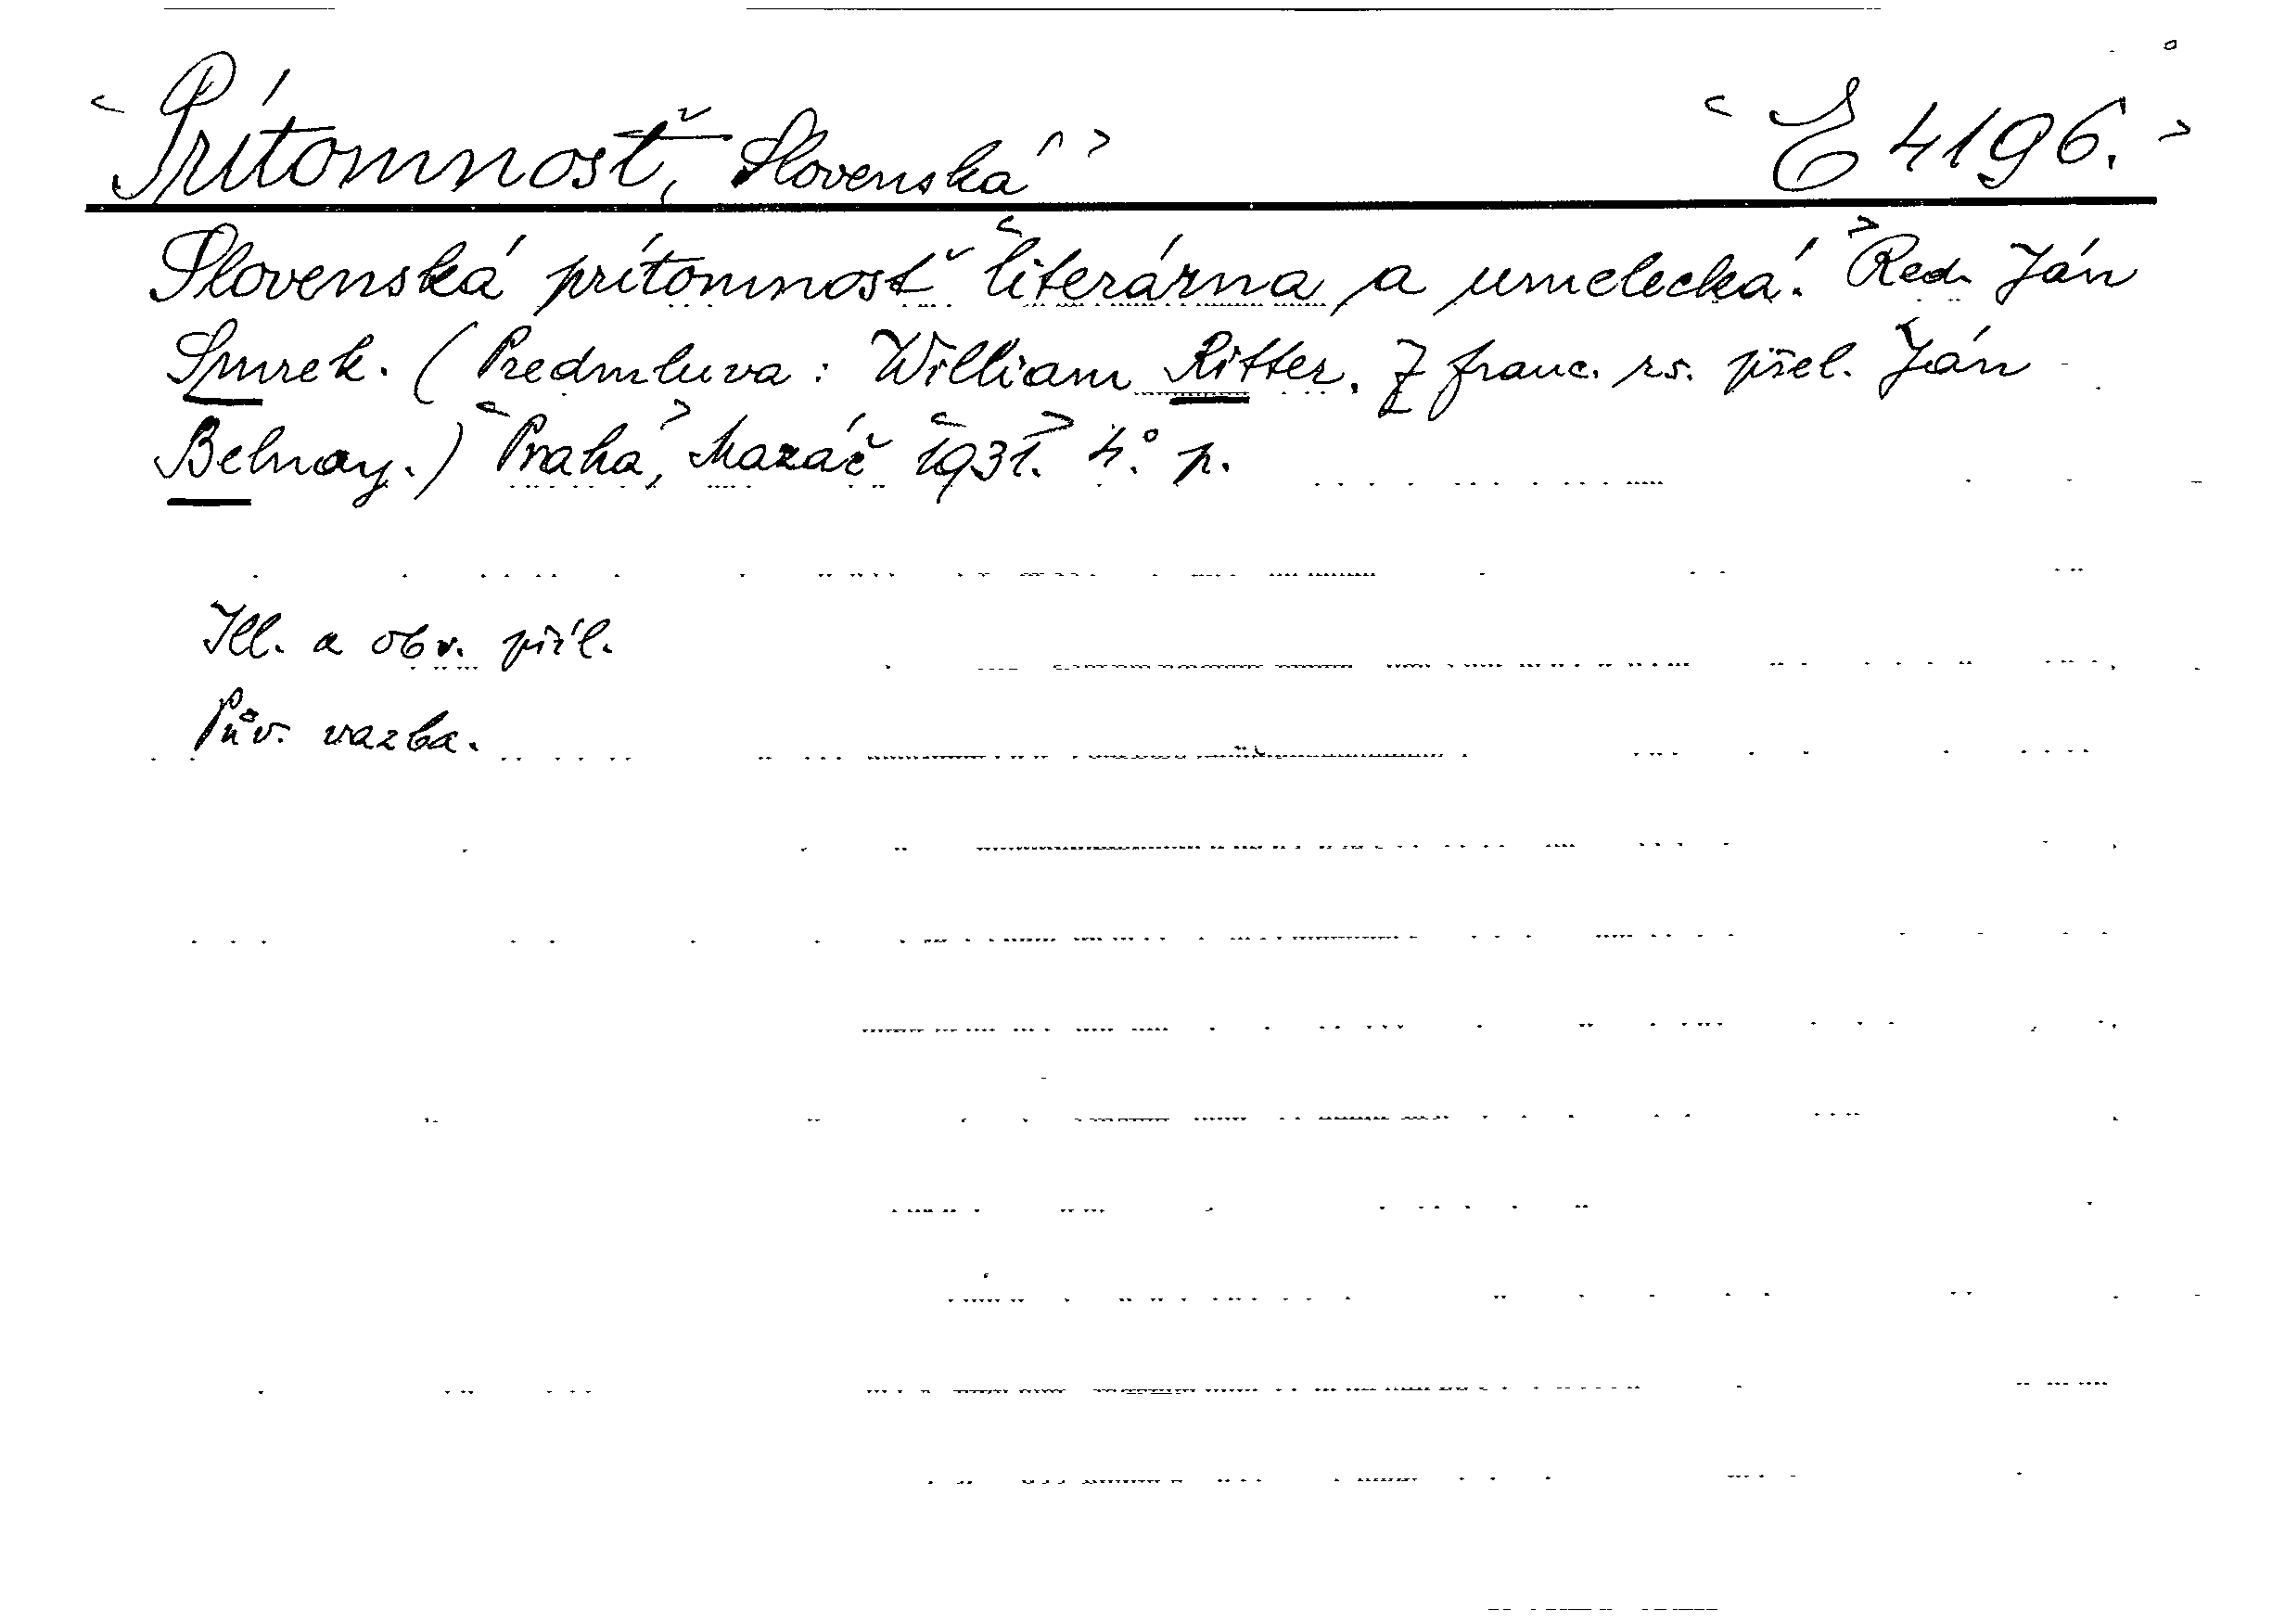 Prítomnosť, Slovenská E 4196.
Slovenská prítomnosť literárna a umelecká. Red. Ján
Smrek. (Predmluva: William Ritter. Z franc. rs. přel. Ján
Belnay.) Praha, Mazáč 1931. 4.° p.
Ill. a obr. příl.
Pův. vazba.